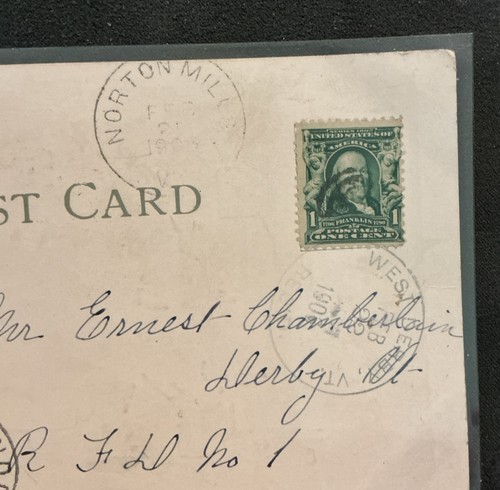 NORTON MILLS
FEB
190
V
ST CARD
SERIES 1902
UNITED STATES OF
AMERICA
1 1706 FRANKLIN 1790 1
POSTAGE
ONE CENT
WEST
FEB
190
VT
Mr Ernest Chamberlain
Derby Vt
R F D No 1